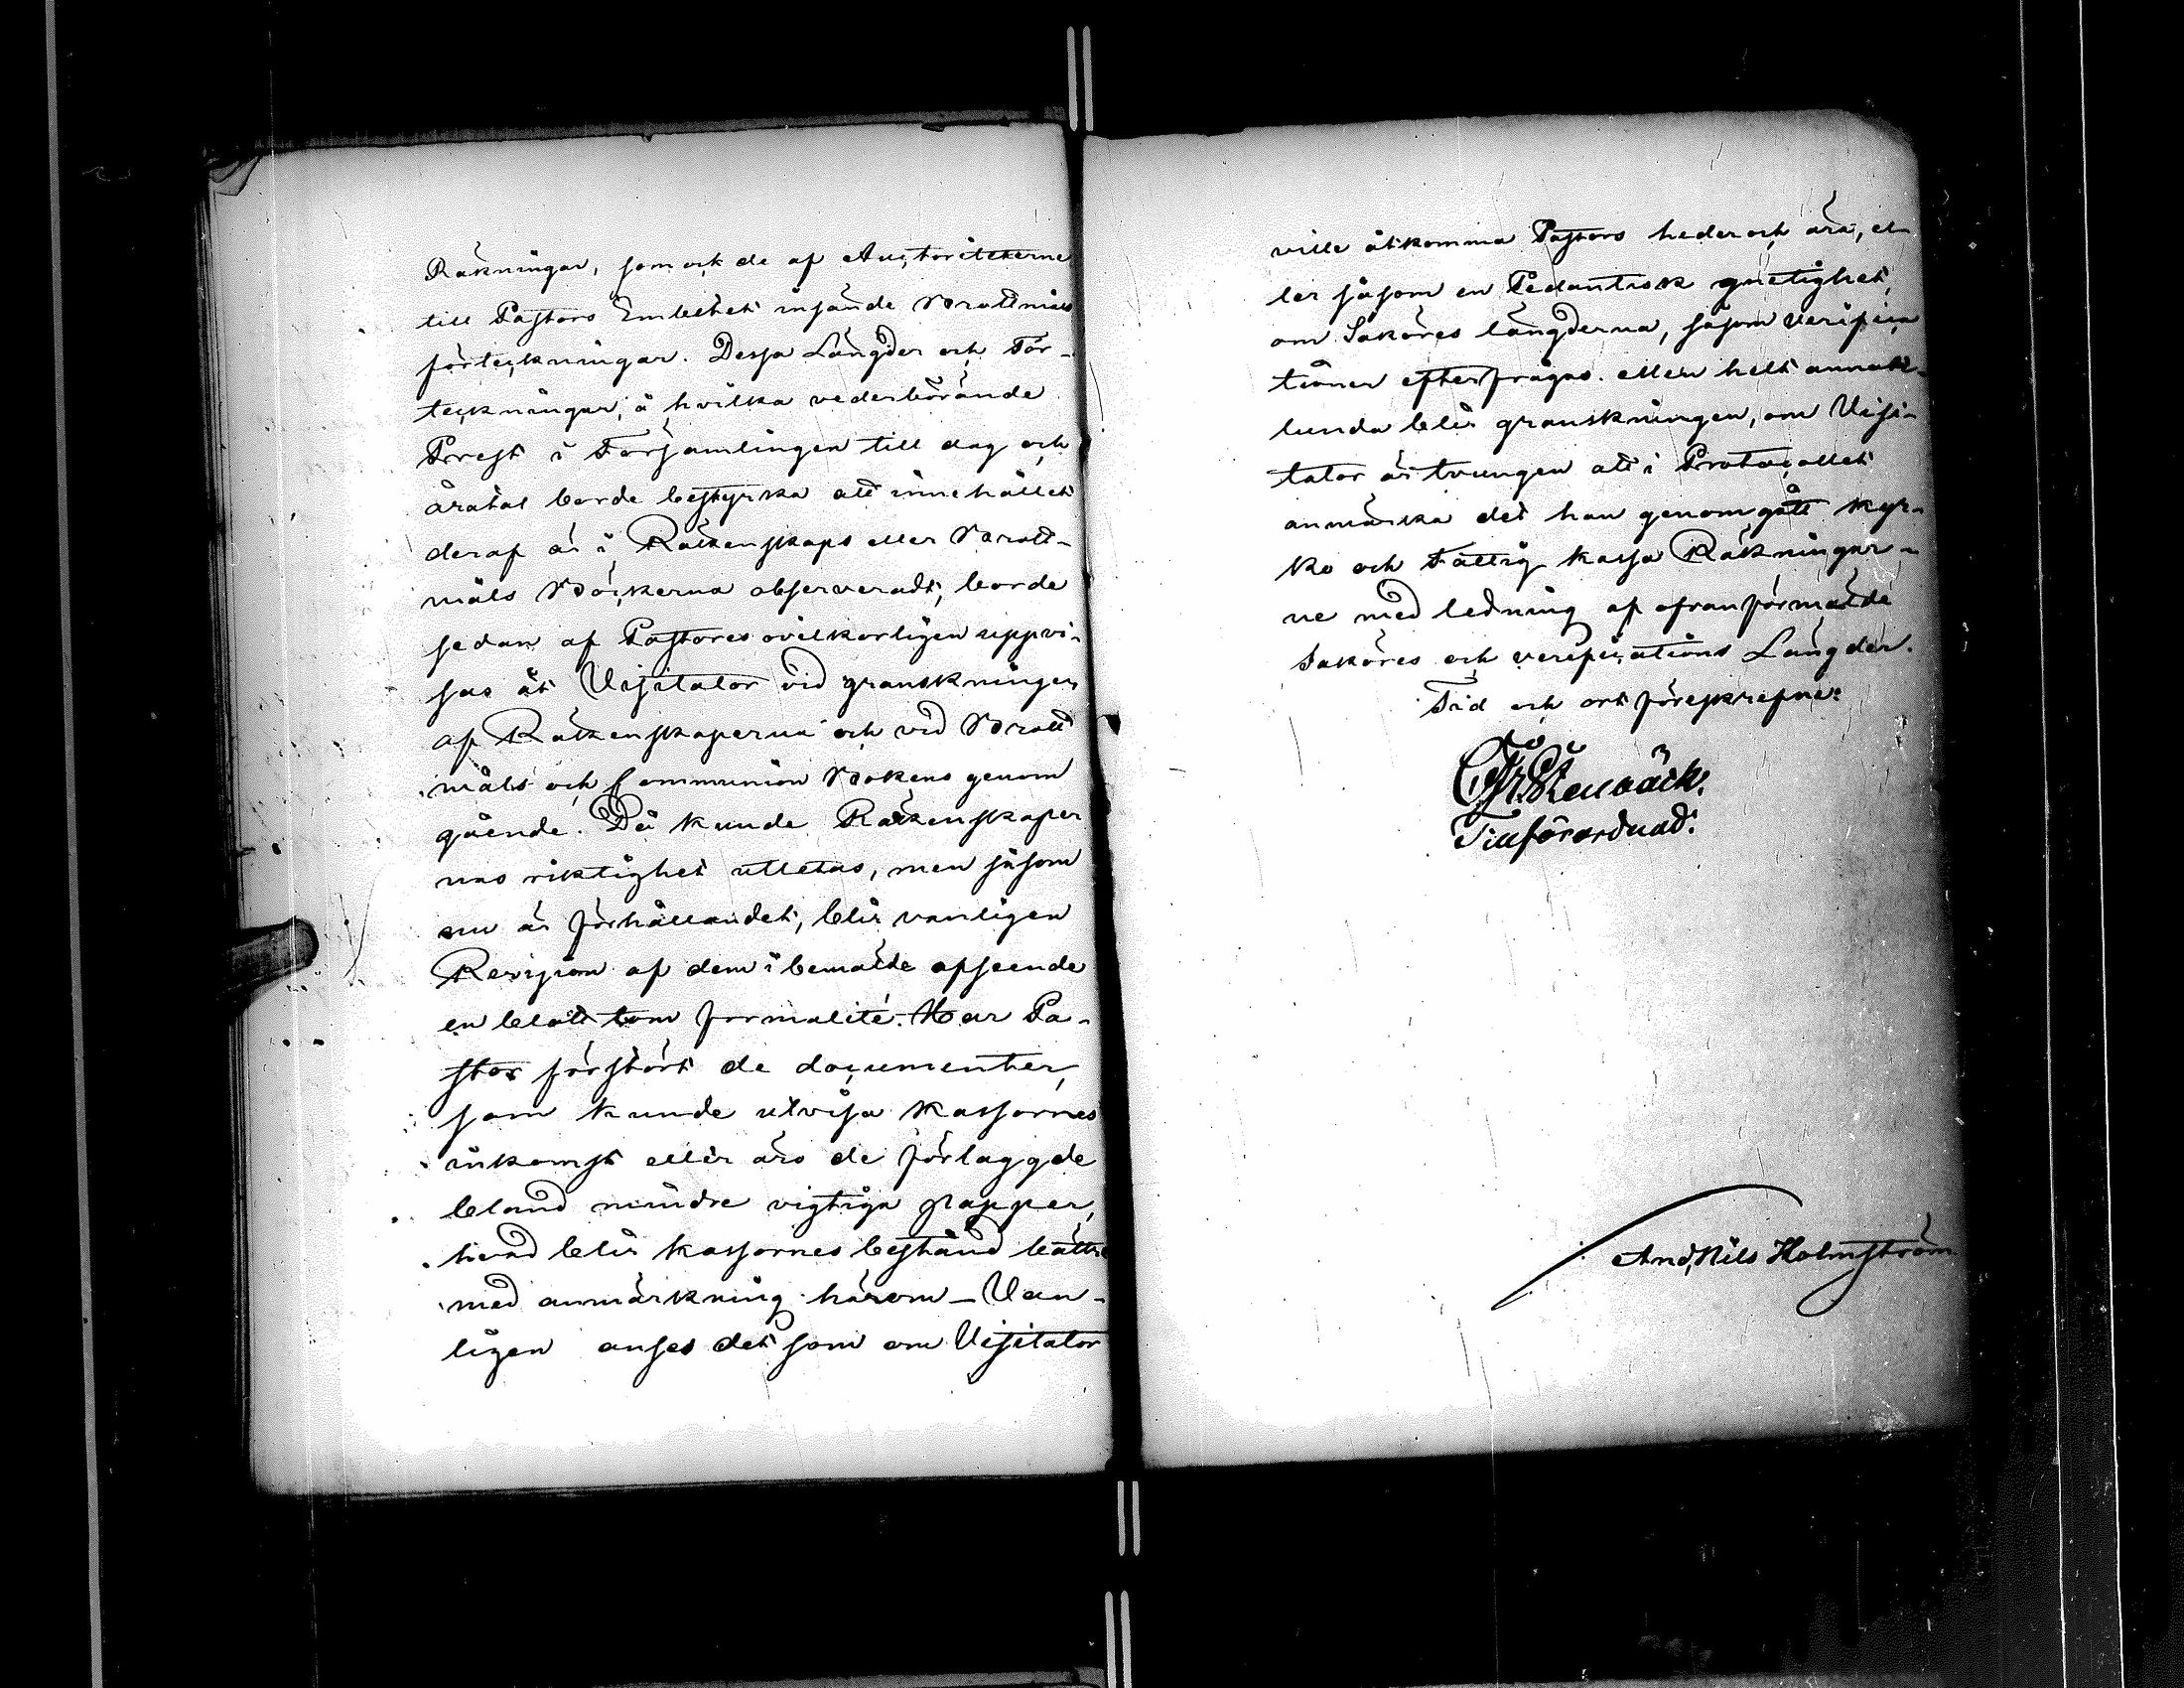 Räkningar, som ock de af Auctoriteterne
till Pastors Embetet insände Brottmåls
förteckningar. Dessa Längder och För-
teckningar, å hvilka vederbörande
Prest i Församlingen till dag och
åratal borde bestyrka att innehållet
deraf är i Räkenskaps eller Brott-
måls Böckerna observeradt, borde
sedan af Pastores ovilkorligen uppvi-
sas åt Visitator vid granskningen
af Räkenskaperna och vid Brott
måls och Communion Bokens genom
gående. Då kunde Räkenskaper
nas riktighet utletas, men såsom
nu är förhållandet, blir vanligen
Revision af dem i bemälde afseende
en blott tom formalité. Har Pa-
stor förstört de documenter,
som kunde utvisa Kassornes
inkomst eller äro de förlaggde
bland mindre vigtiga papper,
hvad blir kassornes bestånd bättre
med anmärkning härom – Van-
ligen anses det som om Visitator
ville åtkomma Pastors heder och ära, el-
ler såsom en Pedantisk gnetighet,
om Saköres längderna, såsom verifica
tioner efterfrågas. eller helt annat-
lunda blir granskningen, om Visi-
tator är tvungen att i Protocollet
anmärka det han genomgått Kyr-
ko och Fattig kassa Räkningar-
ne med ledning af ofvanförmälde
Saköres och verifications Längder.
Tid och ort föreskrefne:
Stenbäck.
Tillförordnad.
And. Nils Holmström